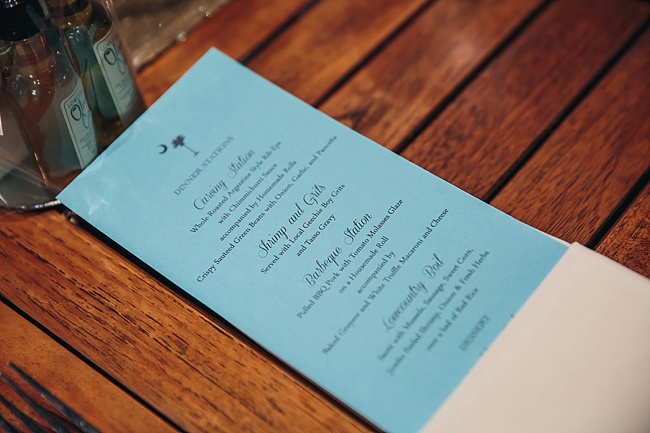 DINNER STATIONS
Carving Station
Whole Roasted Argentine Style Rib Eye
with Chimmichurri Sauce
accompanied by Homemade Rolls
Crispy Sauteed Green Beans with Onion, Garlic, and Pancetta
Shrimp and Grits
Served with Local Geechie Boy Grits
and Tasso Gravy
Barbeque Station
Pulled BBQ Pork with Tomato Molasses Glaze
on a Homemade Roll
accompanied by
Baked Gruyere and White Truffle Macaroni and Cheese
Lowcountry Boil
with Mussels, Sausage, Sweet Corn,
Jumbo Peeled Shrimp, Onion & Fresh Herbs
over a bed of Red Rice
DESSERT